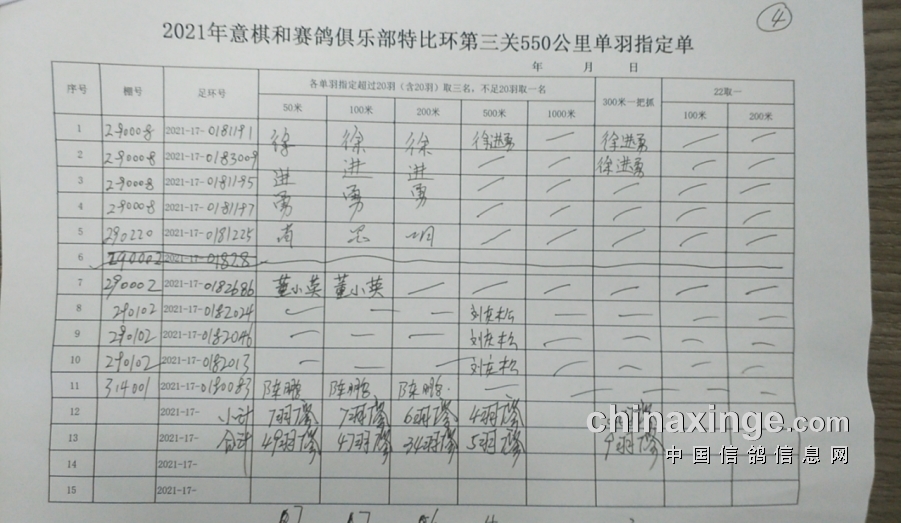 ④
2021年意棋和赛鸽俱乐部特比环第三关550公里单羽指定单
年 月 日
序号 棚号 足环号 各单羽指定超过20羽（含20羽）取三名，不足20羽取一名 300米一把抓 22取一
50米 100米 200米 500米 1000米 100米 200米
1 290008 2021-17-0181191 徐 徐 徐 徐进勇 — 徐进勇 — —
2 290008 2021-17-0183009 进 进 进 — — 徐进勇 — —
3 290008 2021-17-0181195 — — — — —
4 290008 2021-17-0181197 勇 勇 勇 — — — — —
5 290220 2021-17-0181225 — — — — —
6 290002 2021-17-01828
7 290002 2021-17-0182686 董小英 董小英 — — — — — —
8 290102 2021-17-0182024 — — — 刘友松 — — — —
9 290102 2021-17-0182046 — — — 刘友松 — — — —
10 290102 2021-17-0182013 — — — 刘友松 — — — —
11 314001 2021-17-0180083 陈鹏 陈鹏 陈鹏 — — — — —
12 2021-17- 小计 7羽 7羽 6羽 4羽
13 2021-17- 合计 49羽 47羽 34羽 5羽 9羽
14 2021-17-
15 2021-17-
chinaxinge.com
中国信鸽信息网